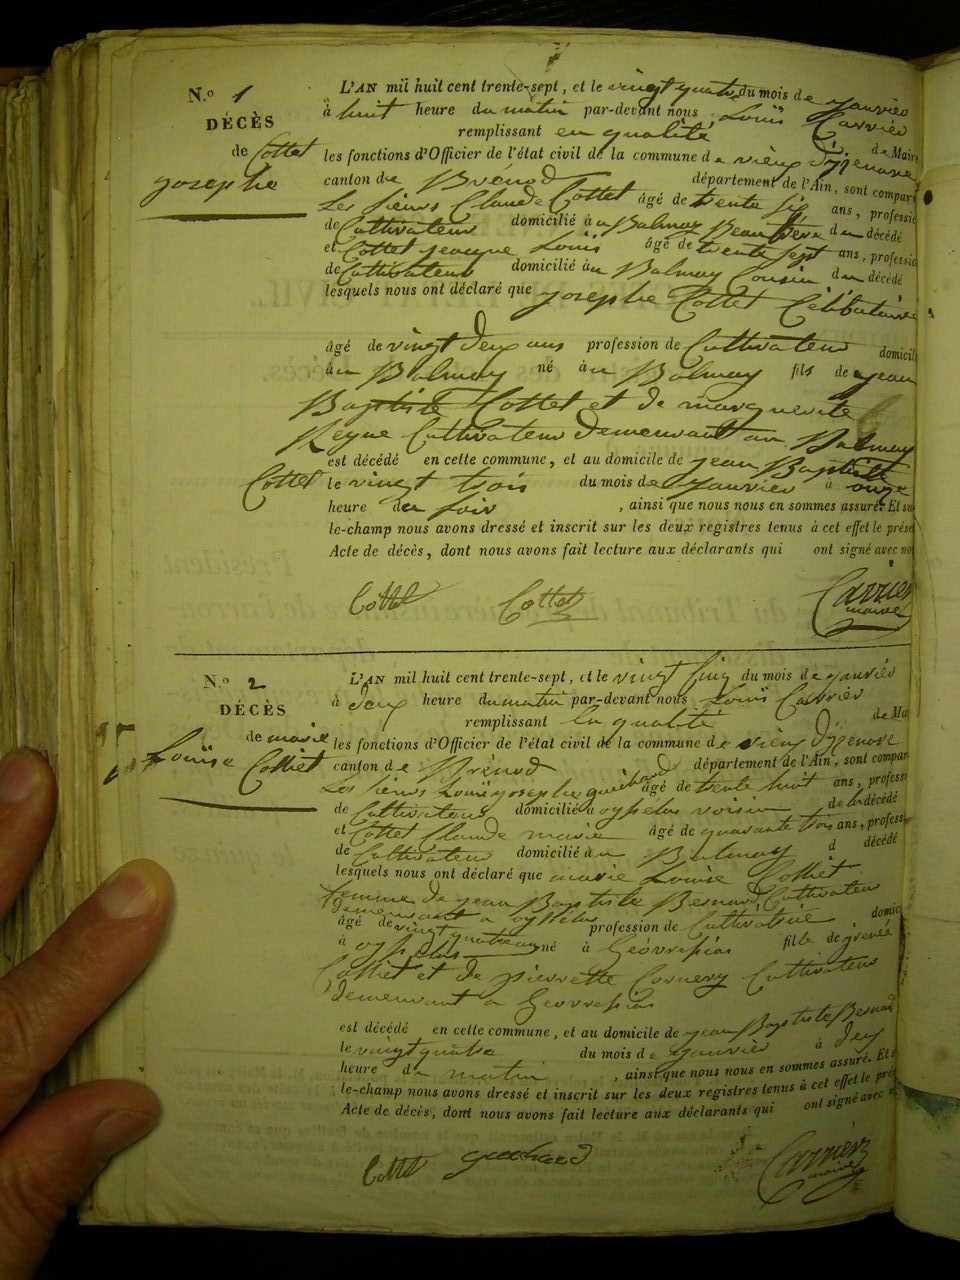 N.o 1
DÉCÈS
de Cottet
josephe
L'AN mil huit cent trente-sept, et le vingt quatre du mois de janvier
à huit heure du matin par-devant nous Louis Carrier
remplissant en qualité de Maire
les fonctions d'Officier de l'état civil de la commune de vieux d'izenave
canton de Brenod département de l'Ain, sont compar
Les sieurs Claude Cottet âgé de trente six ans, professio
de Cultivateur domicilié à u Balmay Beau frere du décédé
et Cottet jacque Louis âgé de trente sept ans, professio
de Cultivateur domicilié à u Balmay Cousin du décédé
lesquels nous ont déclaré que josephe Cottet Célibataire
âgé de vingt deux ans profession de Cultivateur domicil
à u Balmay né à u Balmay fils de jean
Baptiste Cottet et de marguerite
Reyne Cultivateur demeurant au Balmay
est décédé en cette commune, et au domicile de jean Baptiste
Cottet le vingt trois du mois de janvier à onze
heure du soir, ainsi que nous nous en sommes assuré. Et su
le-champ nous avons dressé et inscrit sur les deux registres tenus à cet effet le prése
Acte de décès, dont nous avons fait lecture aux déclarants qui ont signé avec no
Cottet Cottet Carrier
maire
N.o 2
DÉCÈS
de marie
Louise Colliet
L'AN mil huit cent trente-sept, et le vingt sinq du mois de janvier
à deux heure du matin par-devant nous Louis Carrier
remplissant en qualité de Mai
les fonctions d'Officier de l'état civil de la commune de vieux d'izenave
canton de Brénod département de l'Ain, sont compar
Les sieurs Louis josephe guichard âgé de trente huit ans, professi
de Cultivateur domicilié à voisin de la décédé
et Cottet Claude marie âgé de quarante trois ans, profess
de Cultivateur domicilié à u Balmay d décédé
lesquels nous ont déclaré que marie Louise Colliet
femme de jean Baptiste Bernard Cultivateur
demeurant a
âgé de vingt quatre ans profession de Cultivatrice domic
à né à Géovresiat fille de
Colliet et de pierrette Cultivateur
demeurant a Geovresiat
est décédé en cette commune, et au domicile de jean Baptiste Bernard
le vingt quatre du mois de janvier à dix
heure du matin, ainsi que nous nous en sommes assuré. Et s
le-champ nous avons dressé et inscrit sur les deux registres tenus à cet effet le pré
Acte de décès, dont nous avons fait lecture aux déclarants qui ont signé avec n
Cottet guichard Carrier
maire